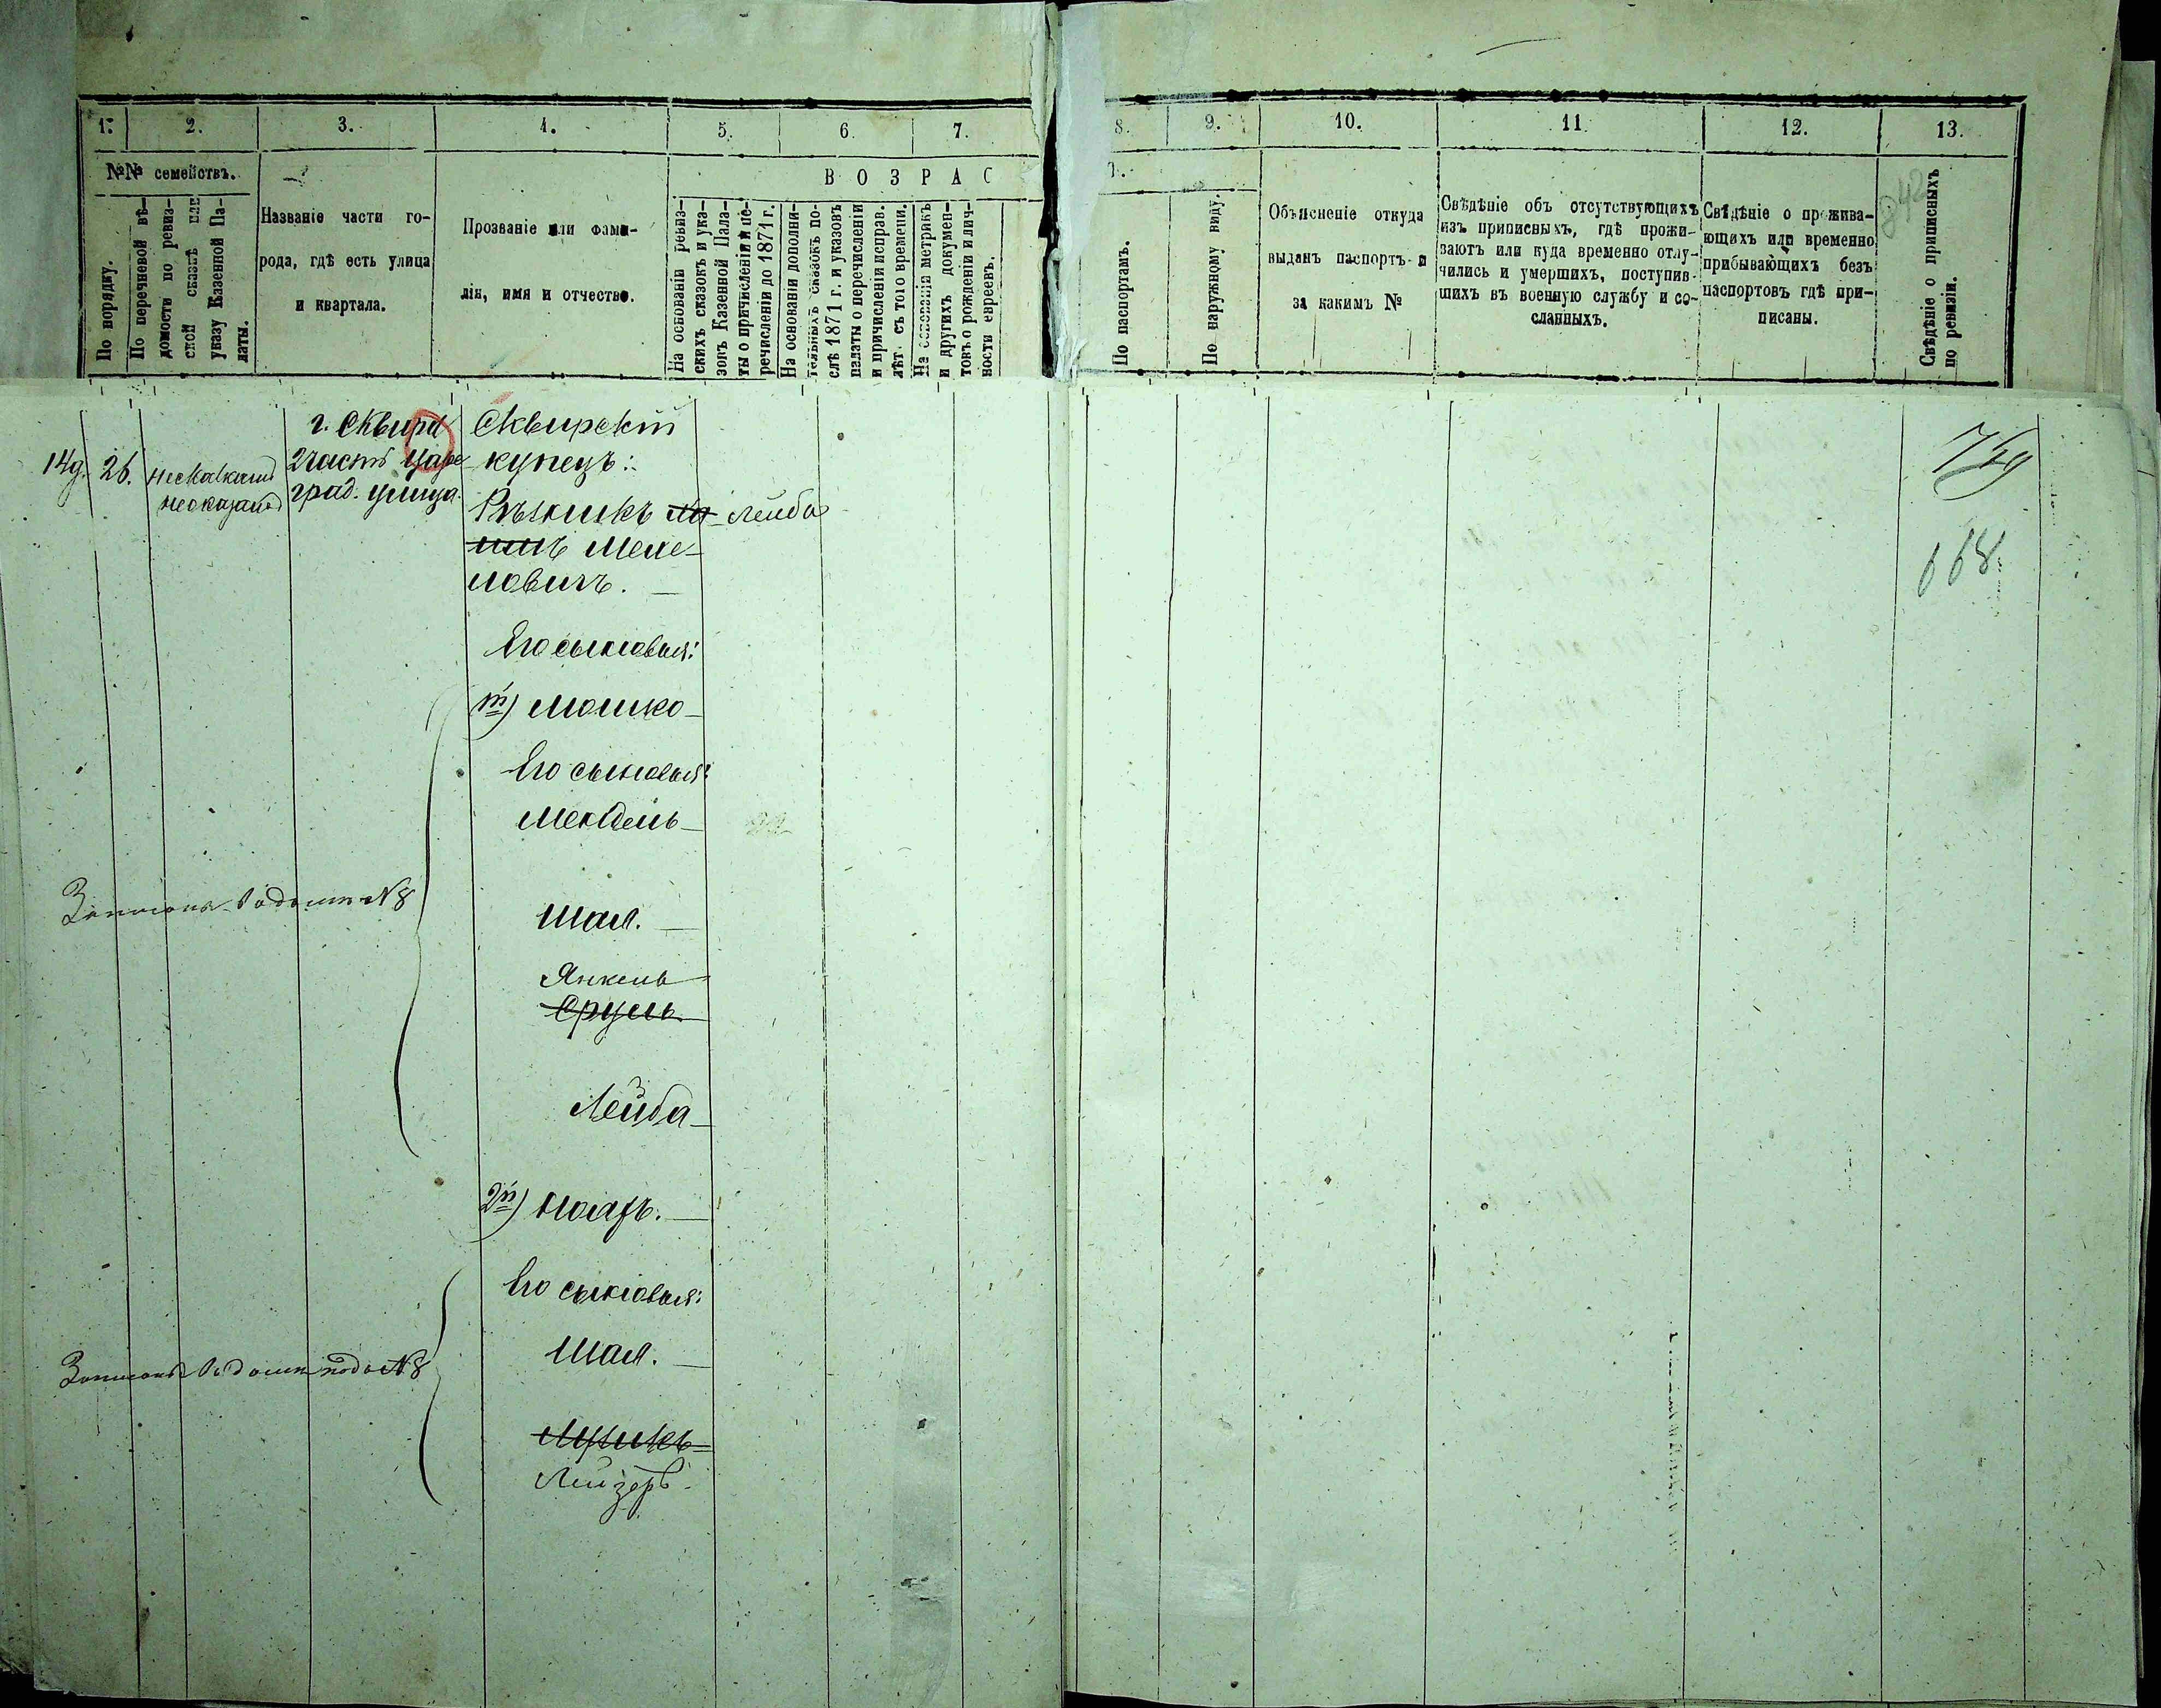 1. 2. 3. 4. 5. 6. 7. 8. 9. 10. 11. 12. 13.
№№ семействъ.
По порядку.
По перечневой вѣ-
домости по ревиз-
ской сказкѣ или
указу Казенной Па-
латы.
Названіе части го-
рода, гдѣ есть улица
и квартала.
Прозваніе или фами-
лія, имя и отчество.
ВОЗРАС
Т.
На основаніи ревиз-
скихъ сказокъ и ука-
зовъ Казенной Пала-
ты о причисленіи и пе-
речисленіи до 1871 г.
На основаніи дополни-
тельныхъ сказокъ по-
слѣ 1871 г. и указовъ
палаты о перечисленіи
и причисленіи исправ.
лѣт. съ того времени.
На основаніи метрикъ
и другихъ докумен-
товъ о рожденіи и лич-
ности евреевъ.
По паспортамъ.
По наружному виду.
Объясненіе откуда
выданъ паспортъ и
за какимъ №
Свѣдѣніе объ отсутствующихъ
изъ приписныхъ, гдѣ прожи-
ваютъ или куда временно отлу-
чились и умершихъ, поступив-
шихъ въ военную службу и со-
сланныхъ.
Свѣдѣніе о прожива-
ющихъ или временно
прибывающихъ безъ
паспортовъ гдѣ при-
писаны.
Свѣдѣніе о приписныхъ
по ревизіи.
26.
г. Сквира
2 часть Царе
град. улица.
Сквирскій
купецъ:
Лейба
Его сыновья:
1й) Мошко
Его сыновья:
Мендель
22
Шая.
Янкель
Сруль.
Лейба
2й)
Его сыновья:
Шая.
Лейзоръ
№ 8
подъ № 8
668